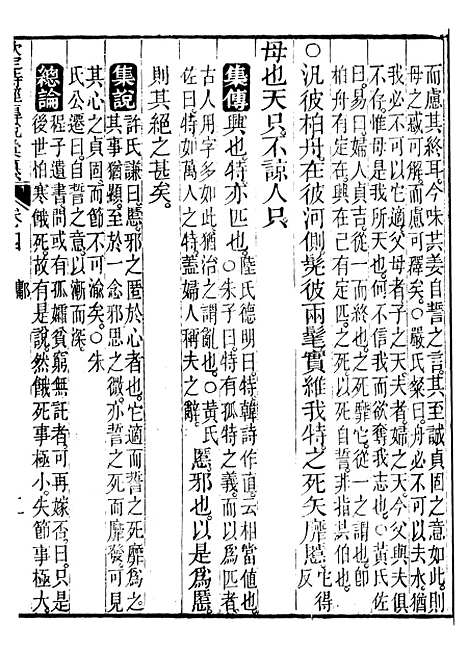 而慮其終耳今味共姜自誓之言其至誠貞固之意如此則
母之或可解而慮可釋矣○嚴氏粲曰舟必不可以去水
我必不可以它適父母者子之天夫者婦之天今父與夫俱
不存惟母是我所天也何不信我而欲奪我志也○黃氏佐
曰易曰婦人貞吉從一而終也之死靡它從一之謂也卽
柏舟有定在興在己有定匹之死以死自誓非指共伯也
○汎彼柏舟在彼河側髧彼兩髦實維我特之死矢靡慝它得反
母也天只不諒人只
集傳興也特亦匹也陸氏德明曰特韓詩作直云相當值也○朱子曰特有孤特之義而以爲匹者
古人用字多如此猶治之謂亂也○黃氏佐曰特如萬人之特蓋婦人稱夫之辭慝邪也以是爲慝
則其絕之甚矣
集說許氏謙曰慝邪之匿於心者也它適而誓之死靡爲之
其事猶顯至於一念邪思之微亦誓之死而靡發可見
其心之貞固而節不可渝矣○朱
氏公遷曰慝以漸而深
總論程子遺書問或有孤孀貧窮無託者可再嫁否曰只是
後世怕寒餓死故有是說然餓死事極小失節事極大
卷四 鄘